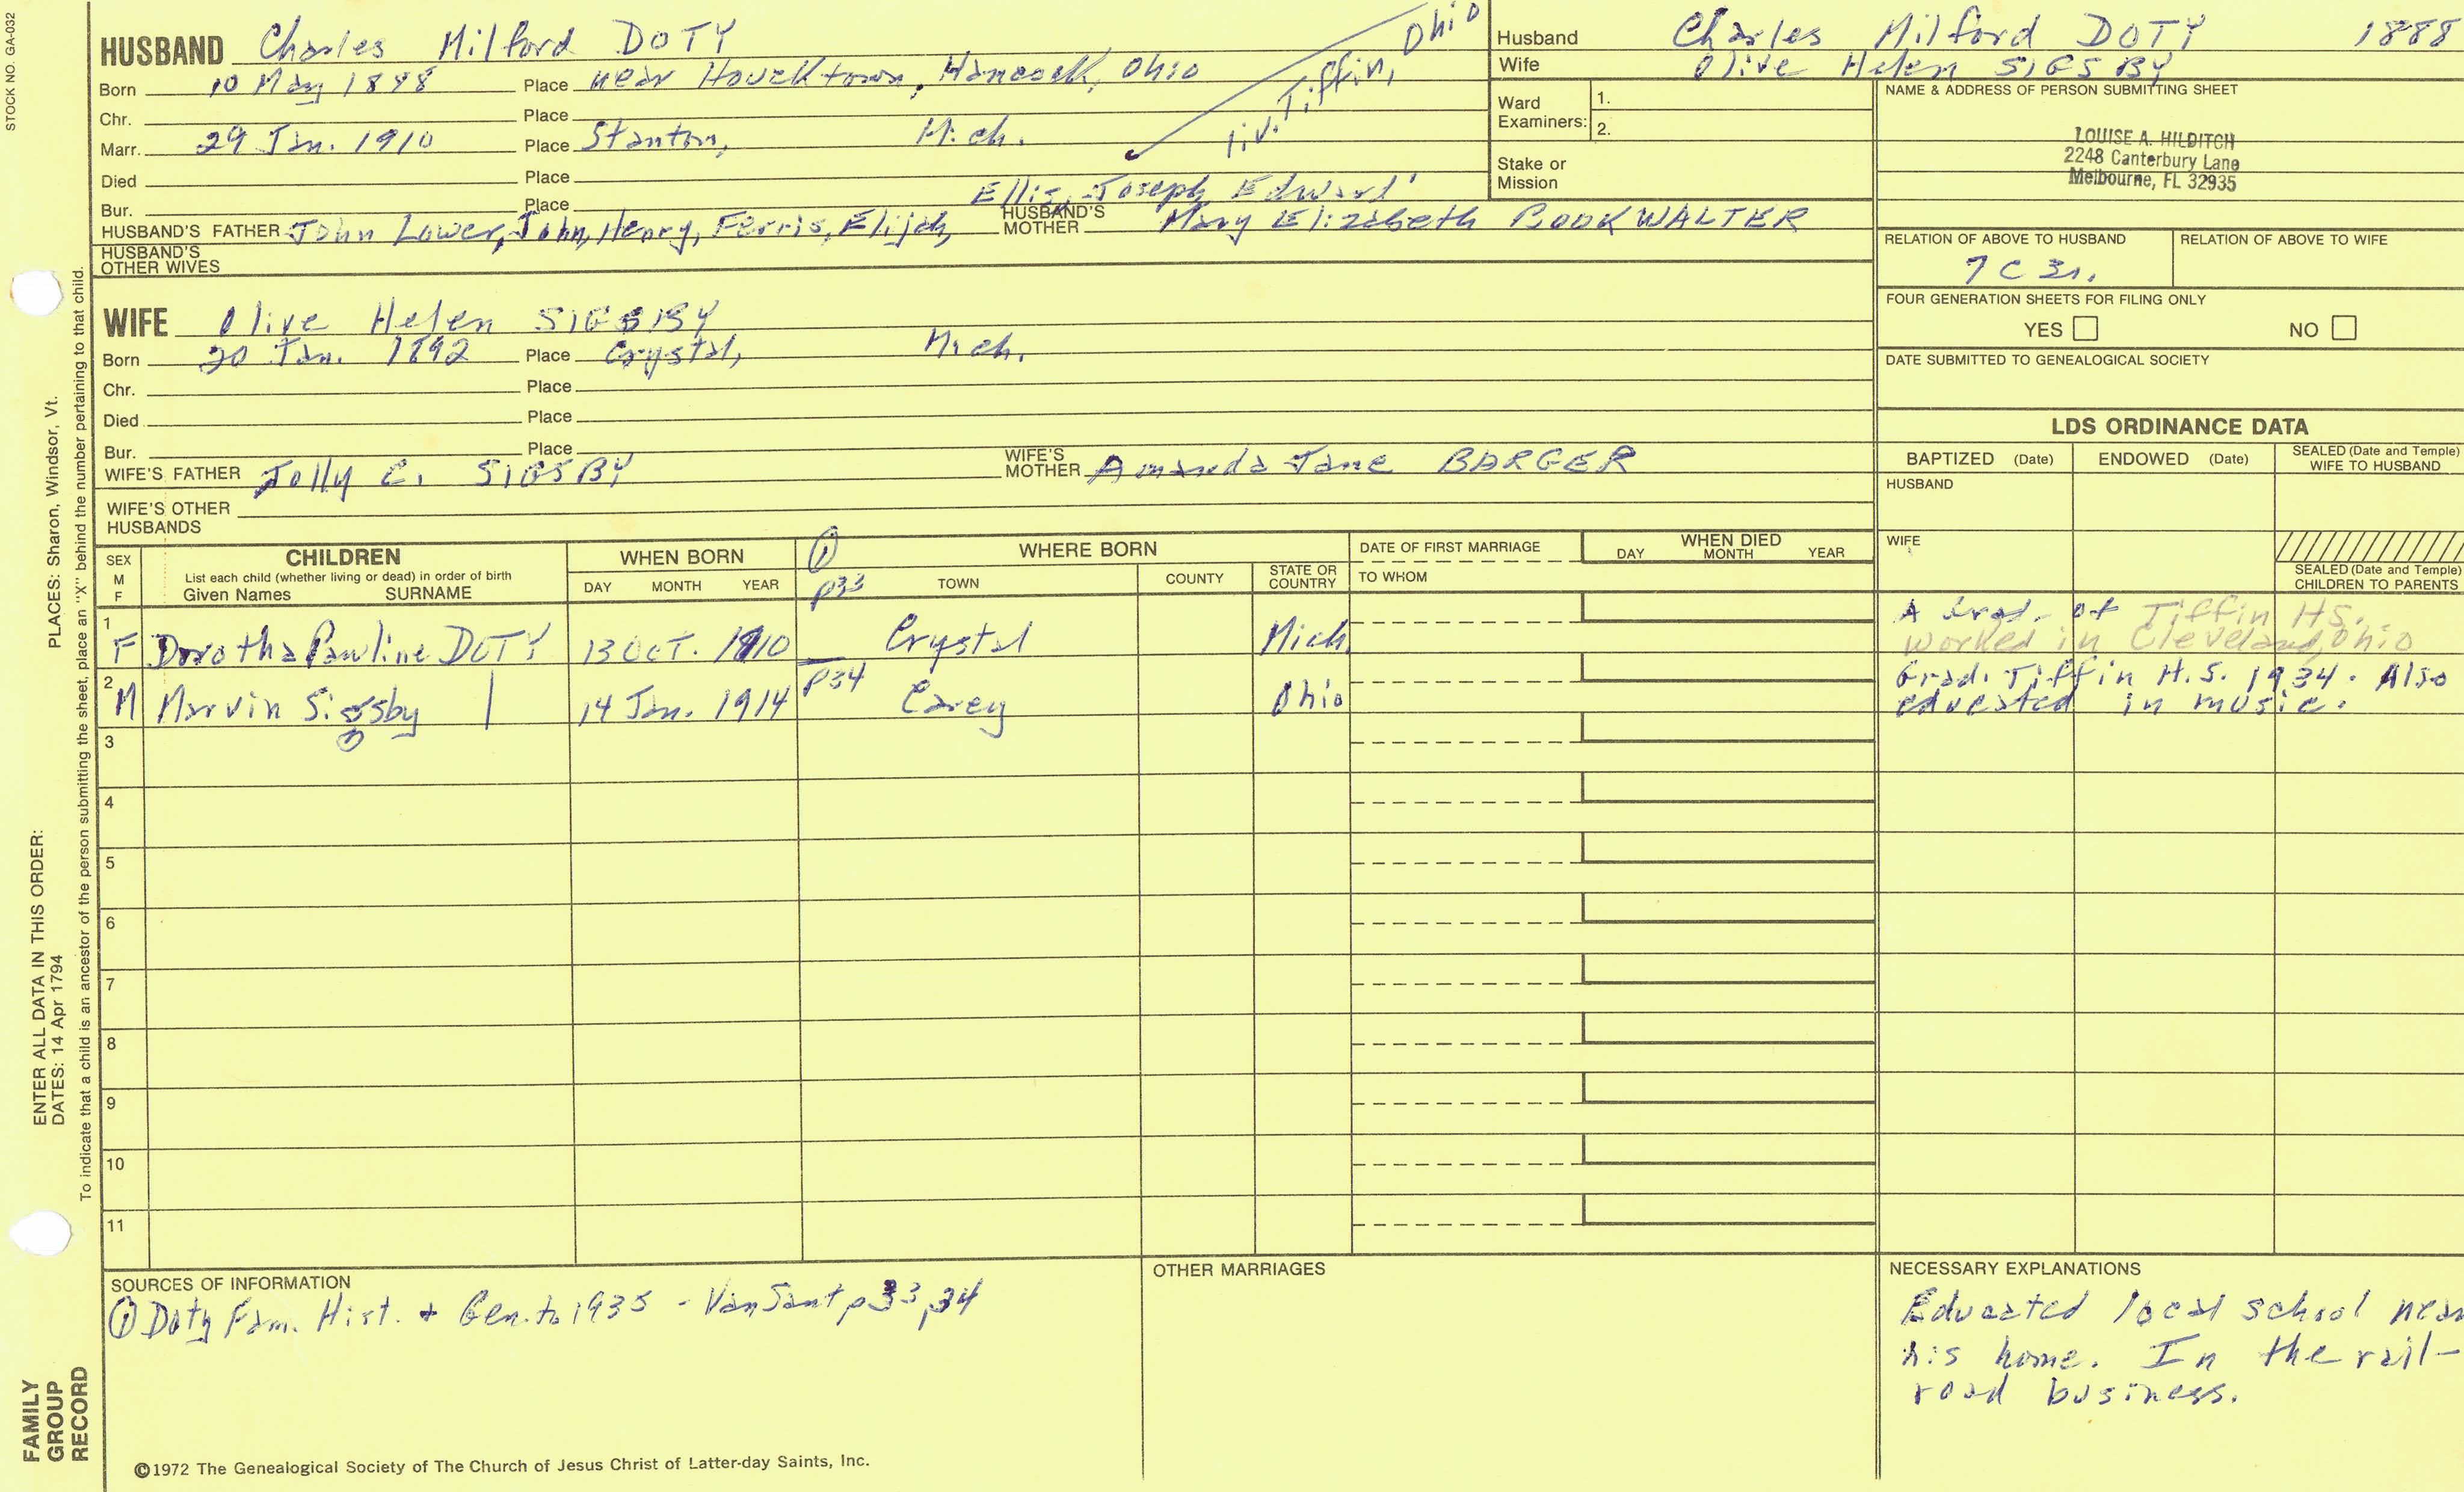 STOCK NO. GA-032
HUSBAND Charles Milford DOTY
Born 10 May 1888 Place near Houcktown, Hancock, Ohio
Chr. Place
Marr. 29 Jan. 1910 Place Stanton, Mich.
liv. Tiffin, Ohio
Died Place
Bur. Place
Ellis, Joseph, Edward'
HUSBAND'S FATHER John Lower, John, Henry, Ferris, Elijah, HUSBAND'S MOTHER Mary Elizabeth BOOKWALTER
HUSBAND'S OTHER WIVES
WIFE Olive Helen SIGSBY
Born 20 Jan. 1892 Place Crystal, Mich.
Chr. Place
Died Place
Bur. Place
WIFE'S FATHER Jolly C. SIGSBY WIFE'S MOTHER Amanda Jane BARGER
WIFE'S OTHER HUSBANDS
Husband Charles Milford DOTY 1888
Wife Olive Helen SIGSBY
Ward Examiners: 1.
2.
Stake or Mission
NAME & ADDRESS OF PERSON SUBMITTING SHEET
LOUISE A. HILDITCH
2248 Canterbury Lane
Melbourne, FL 32935
RELATION OF ABOVE TO HUSBAND RELATION OF ABOVE TO WIFE
7 C 3r.
FOUR GENERATION SHEETS FOR FILING ONLY
YES NO
DATE SUBMITTED TO GENEALOGICAL SOCIETY
LDS ORDINANCE DATA
BAPTIZED (Date) ENDOWED (Date) SEALED (Date and Temple) WIFE TO HUSBAND
HUSBAND
WIFE
SEALED (Date and Temple) CHILDREN TO PARENTS
SEX M F
CHILDREN
List each child (whether living or dead) in order of birth
Given Names SURNAME
WHEN BORN
DAY MONTH YEAR
① WHERE BORN
TOWN COUNTY STATE OR COUNTRY
DATE OF FIRST MARRIAGE
TO WHOM
WHEN DIED
DAY MONTH YEAR
p33
1 F Dorotha Pauline DOTY 13 Oct. 1910 Crystal Mich.
A Grad. of Tiffin HS.
worked in Cleveland, Ohio
p34
2 M Marvin Sigsby | 14 Jan. 1914 Carey Ohio
Grad. Tiffin H.S. 1934. Also
educated in music.
3
4
5
6
7
8
9
10
11
SOURCES OF INFORMATION
① Doty Fam. Hist. + Gen. to 1935 - VanSant p33, 34
OTHER MARRIAGES
NECESSARY EXPLANATIONS
Educated local school near
his home. In the rail-
road business.
©1972 The Genealogical Society of The Church of Jesus Christ of Latter-day Saints, Inc.
FAMILY
GROUP
RECORD
ENTER ALL DATA IN THIS ORDER:
DATES: 14 Apr 1794
PLACES: Sharon, Windsor, Vt.
To indicate that a child is an ancestor of the person submitting the sheet, place an "X" behind the number pertaining to that child.